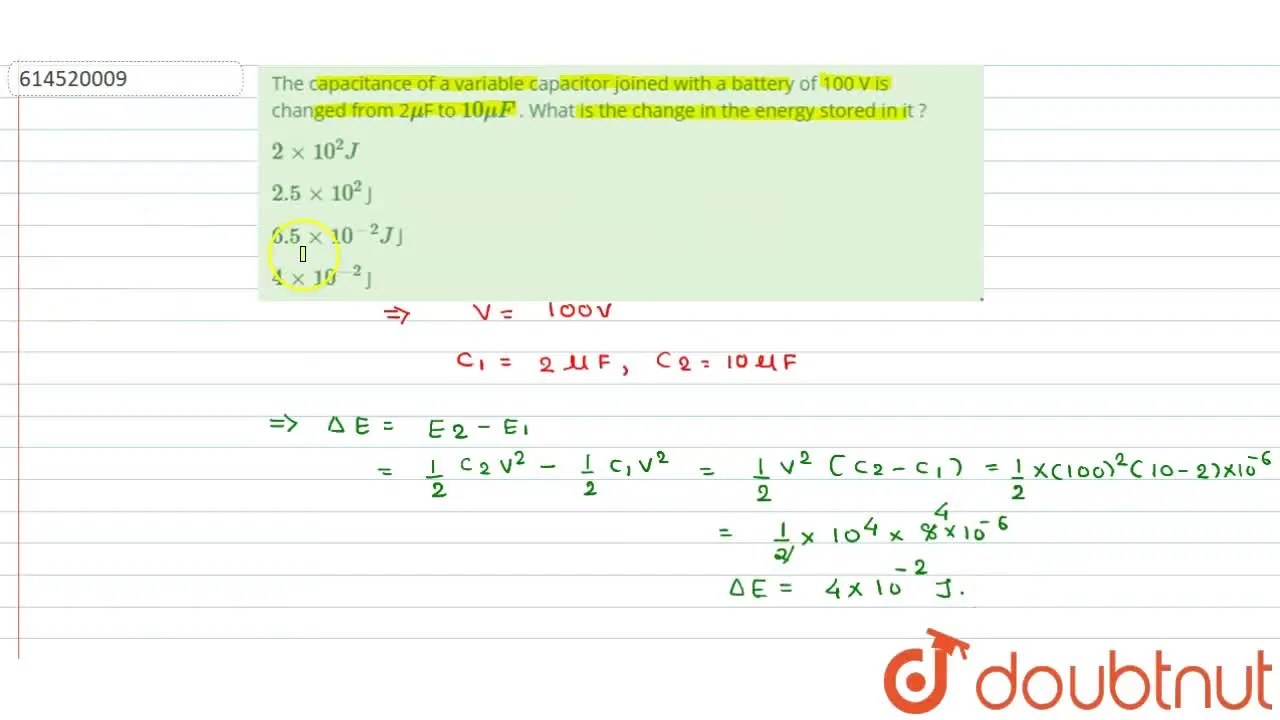 614520009
The capacitance of a variable capacitor joined with a battery of 100 V is
changed from 2μF to 10μF . What is the change in the energy stored in it ?
2 × 10² J
2.5 × 10² J
6.5 × 10⁻² J J
4 × 10⁻² J
⇒ V = 100V
C₁ = 2 μF, C₂ = 10 μF
⇒ Δ E = E₂ - E₁
= 1/2 C₂V² - 1/2 C₁V² = 1/2 V² (C₂ - C₁) = 1/2 × (100)² (10 - 2) × 10⁻⁶
= 1/2 × 10⁴ × 8 4 × 10⁻⁶
Δ E = 4 × 10⁻² J.
doubtnut